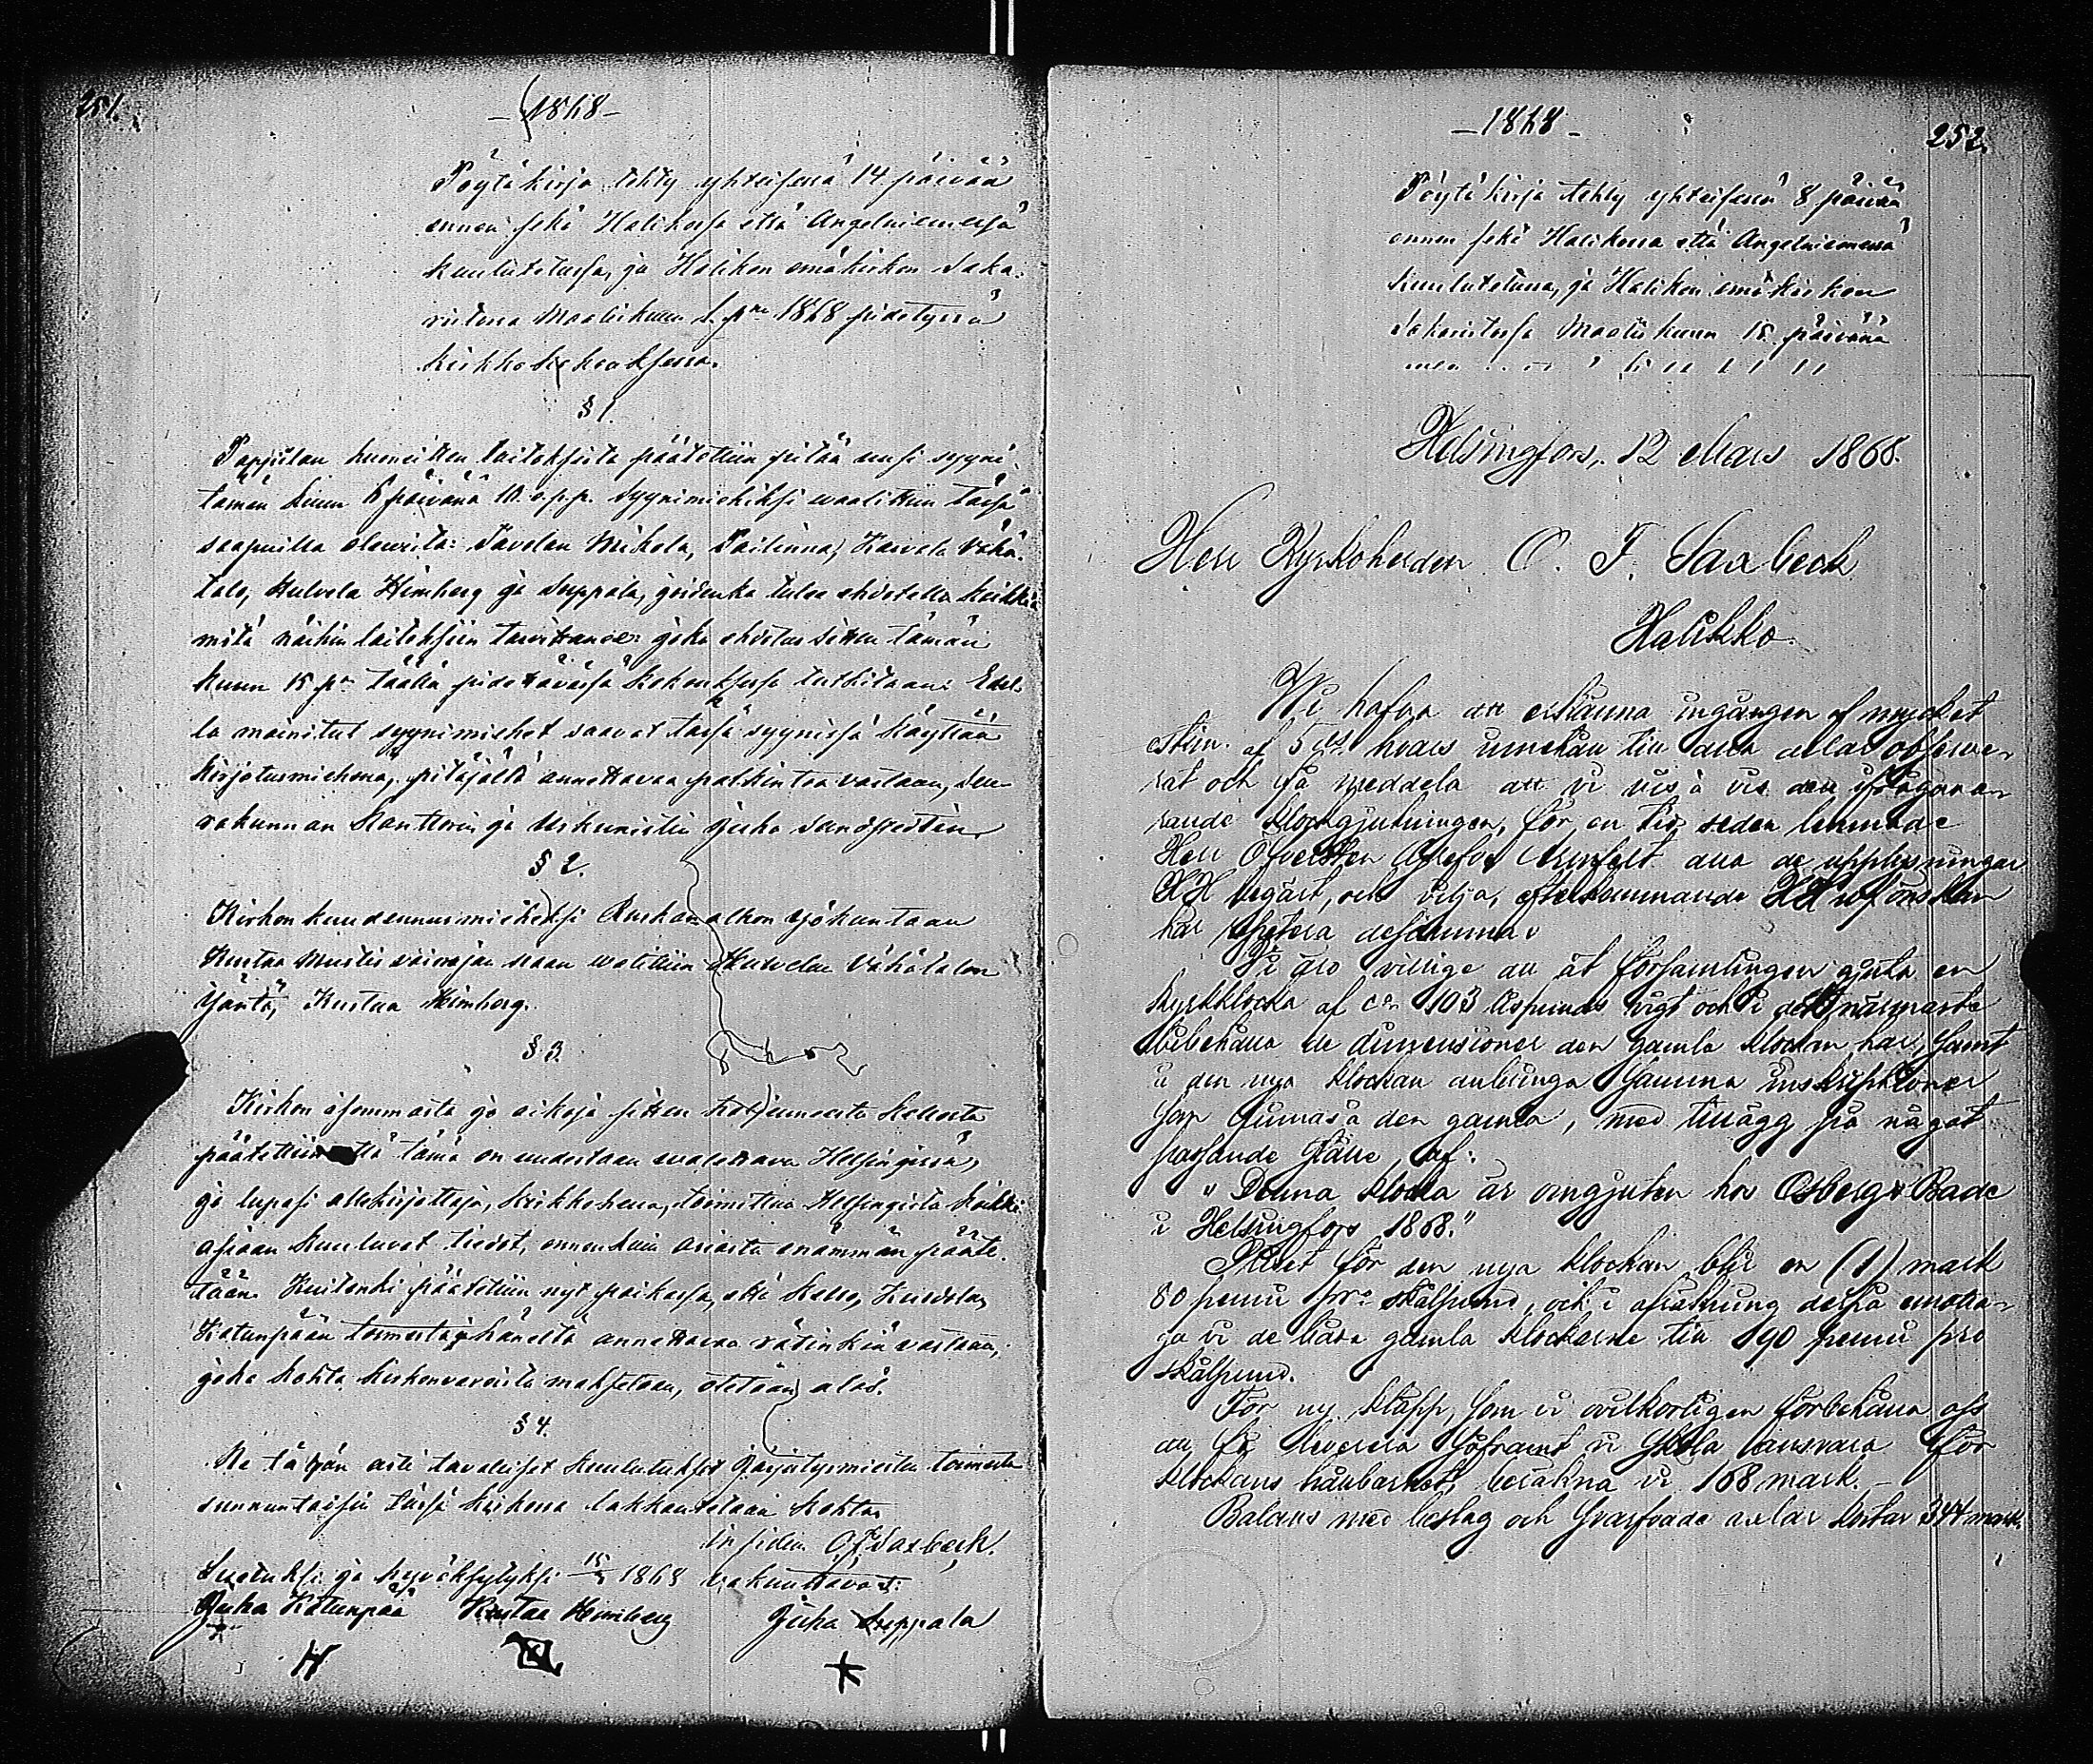 251.
1868
Pöytäkirja tehty yhteisesssä 14 päivää
ennen sekä Halikossa että Angelniemessä
kuulutetussa, ja Halikon emäkirkon Saka-
ristossa Maaliskuun 1 p:nä 1868 pidetyssä
kirkkokokouksessa.
§ 1.
Pappilan huoneitten laitoksista päätettiin pitää uusi syyni
tämän kuun 6 päivänä 10 e.p.p. Syynimiehiksi waalittiin tässä
saapuilla olewista: Tavolan Mikola, Pailinna, Kaivola Vähä-
talo, Kulvola Himberg ja Seppala, joidenka tulee ehdotella kaikki
mitä näihin laitoksiin tarvitaan: joka ehdotus sitten tämän
kuun 15 p:nä täällä pidettävässä kokouksessa tutkitaan. Edel-
lä mainitut syynimiehet saavat tässä syynissä käyttää
kirjotusmiehenä, pitäjältä annettavaa palkintoa vastaan, Seu-
rakunnan Kanttorin ja Urkunistin Juha
§ 2.
Kirkon kuudennusmieheksi
Kustaa waalittiin Vähätalon
isäntä, Kustaa Himberg.
§ 3.
Kirkon isommasta jo aikoja sitten kellosta
päätettiin että tämä on uudestaan walettava Helsingissä,
ja lupasi allekirjottaja, kirkkoherra, toimittaa Helsingistä kaikki
asiaan kuuluvat tiedot, ennenkuin asiasta enämmän pääte-
tään. Kuitenki päätettiin nyt paikassa, että kello,
Katunpään toimesta ja häneltä annettavaa rätinkiä vastaan,
joka kohta kirkonvaroista maksetaan, otetaan alas.
§ 4.
Ne tähän asti tavalliset kuulutukset järjestysmiesten toimesta
sunnuntaisin tässä kirkossa lakkautetaan kohta.
In fidem O.F. Saxbeck.
Luetuksi ja hyväksytyksi 15/3 1868 vakuuttavat:
Juha Katunpää Kustaa Himberg Juha Seppala
252.
1868
Pöytäkirja tehty yhteisessä 8 päivää
ennen sekä Halikossa että Angelniemessä
kuulutetussa, ja Halikon emäkirkon
Sakaristossa Maaliskuun 15 päivänä
Helsingfors, 12 Mars 1868.
Herr Kyrkoherden O. F. Saxbeck
Halikko.
Wi hafva att erkänna ingången af mycket
estim. af 5 ds hvars innehåll till alla delar observe-
rat och få meddela att vi vis à vis den ifrågava-
rande klockgjutningen, för en tid sedan lemnade
Herr Öfversten Armfelt alla de upplysningar
HH begärt, och vilja, efterkommande HH af önskan
här repetera desamma.
Vi äro villige att åt församlingen gjuta en
kyrkklocka af c:a 103 Lispunds vigt och i det närmaste
bibehålla de dimensioner den gamla klockan har, samt
å den nya klockan anbringa samma inskriptioner
som finnas å den gamla, med tillägg på något
passande ställe, af:
"Denna klocka är omgjuten hos Osberg & Bade
i Helsingfors 1868."
Priset för den nya klockan blir en (1) mark
80 penni pro skålpund, och i afräkning derpå emotta-
ga vi de bära gamla klockarne till 190 penni pro
skålpund.
För ny kläpp, som vi ovilkorligen förbehålla oss
att få leverera såframt vi skola ansvara för
klockans hållbarhet, beräkna vi 168 mark. —
Balans med beslag och svarfvade axlar kostar 344 mark.